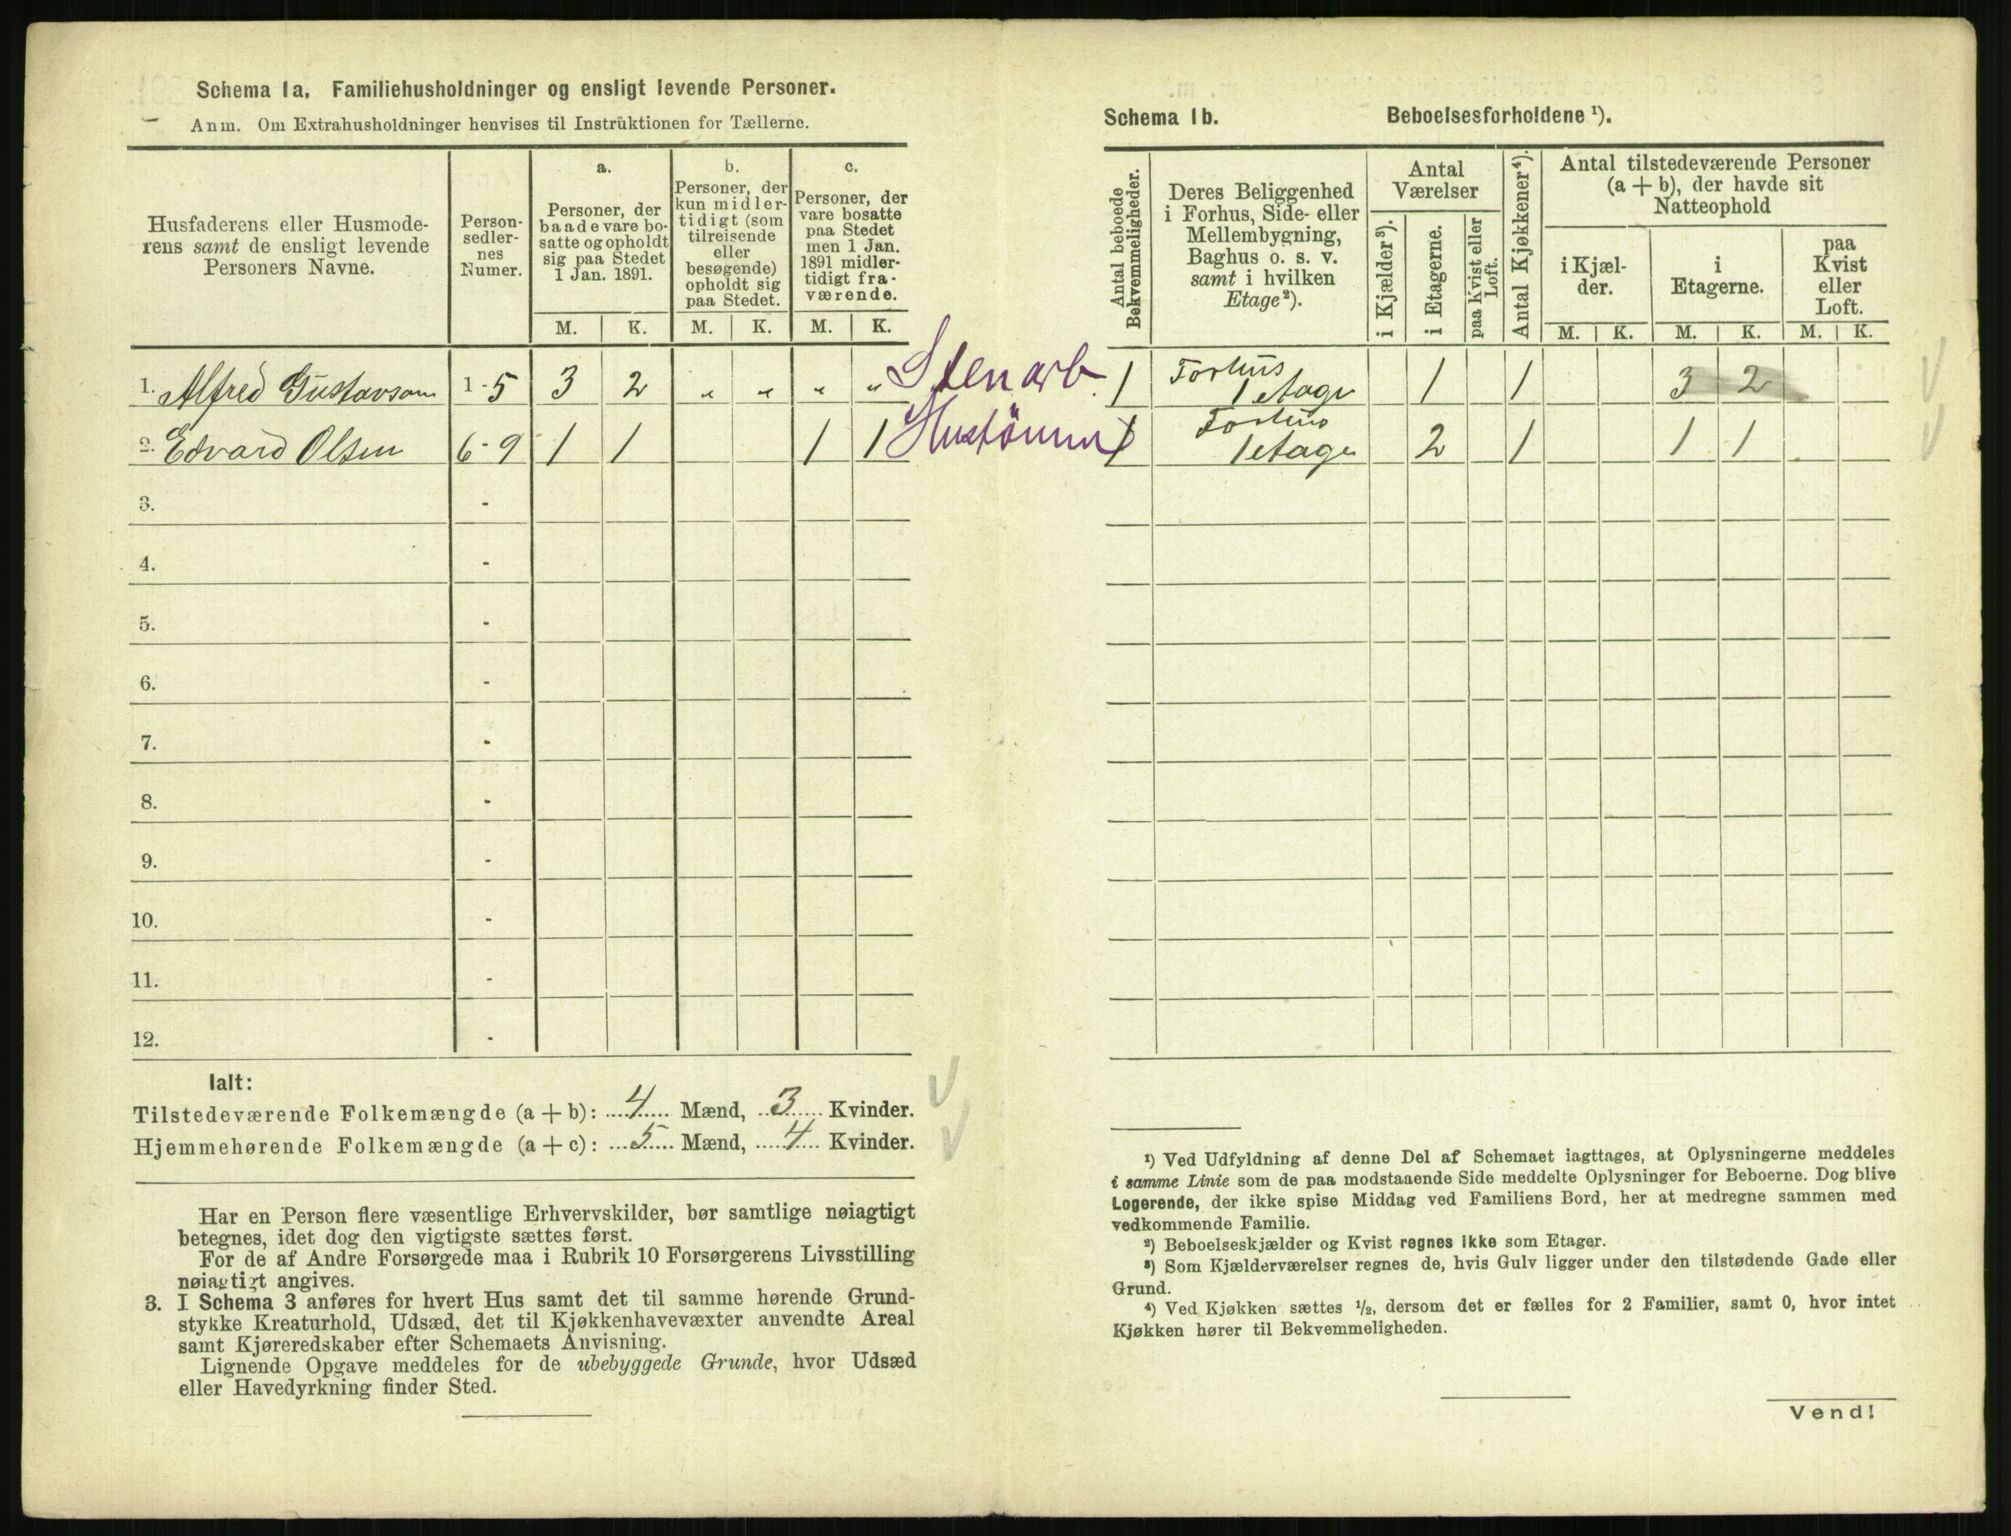 Schema 1a. Familiehusholdninger og ensligt levende Personer.
Anm. Om Extrahusholdninger henvises til Instruktionen for Tællerne.
Husfaderens eller Husmode-
rens samt de ensligt levende
Personers Navne.
Person-
sedler-
nes
Numer.
a.
Personer, der
baade vare bo-
satte og opholdt
sig paa Stedet
1 Jan. 1891.
b.
Personer, der
kun midler-
tidigt (som
tilreisende
eller
besøgende)
opholdt sig
paa Stedet.
c.
Personer, der
vare bosatte
paa Stedet
men 1 Jan.
1891 midler-
tidigt fra-
værende.
M. K. M. K. M. K.
1. Alfred Gustavson 1-5 3 2 " " " " Stenarb.
2. Edvard Olsen 6-9 1 1 1 1
3. -
4. -
5. -
6. -
7. -
8. -
9. -
10. -
11. -
12. -
Ialt:
Tilstedeværende Folkemængde (a + b): 4 Mænd, 3 Kvinder.
Hjemmehørende Folkemængde (a + c): 5 Mænd, 4 Kvinder.
Har en Person flere væsentlige Erhvervskilder, bør samtlige nøiagtigt
betegnes, idet dog den vigtigste sættes først.
For de af Andre Forsørgede maa i Rubrik 10 Forsørgerens Livsstilling
nøiagtigt angives.
3. I Schema 3 anføres for hvert Hus samt det til samme hørende Grund-
stykke Kreaturhold, Udsæd, det til Kjøkkenhavevæxter anvendte Areal
samt Kjøreredskaber efter Schemaets Anvisning.
Lignende Opgave meddeles for de ubebyggede Grunde, hvor Udsæd
eller Havedyrkning finder Sted.
Schema 1b. Beboelsesforholdene ¹).
Antal beboede
Bekvemmeligheder.
Deres Beliggenhed
i Forhus, Side- eller
Mellembygning,
Baghus o. s. v.
samt i hvilken
Etage²).
Antal
Værelser
i Kjælder³).
i Etagerne.
paa Kvist eller
Loft.
Antal Kjøkkener⁴).
Antal tilstedeværende Personer
(a + b), der havde sit
Natteophold
i Kjæl-
der.
i
Etagerne.
paa
Kvist
eller
Loft.
M. K. M. K. M. K.
1 Forhus
1 etage 1 1 3 2
1 Forhus
1 etage 2 1 1 1
¹) Ved Udfyldning af denne Del af Schemaet iagttages, at Oplysningerne meddeles
i samme Linie som de paa modstaaende Side meddelte Oplysninger for Beboerne. Dog blive
Logerende, der ikke spise Middag ved Familiens Bord, her at medregne sammen med
vedkommende Familie.
²) Beboelseskjælder og Kvist regnes ikke som Etager.
³) Som Kjælderværelser regnes de, hvis Gulv ligger under den tilstødende Gade eller
Grund.
⁴) Ved Kjøkken sættes ½, dersom det er fælles for 2 Familier, samt 0, hvor intet
Kjøkken hører til Bekvemmeligheden.
Vend!